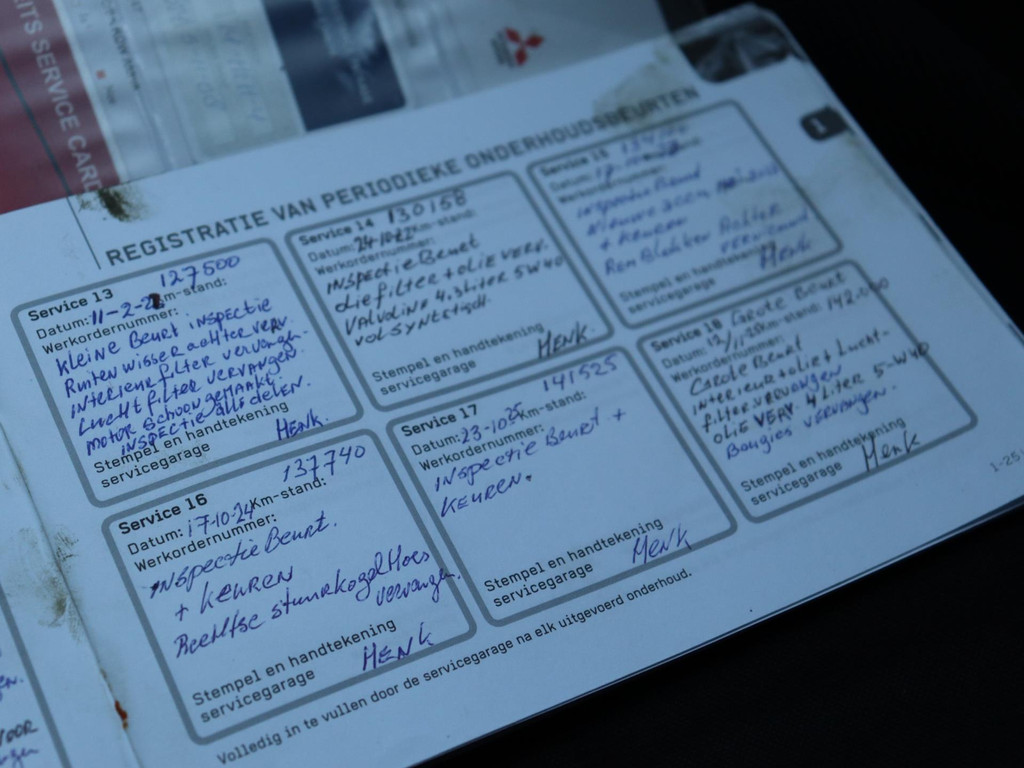 ITS SERVICE CARD
1
REGISTRATIE VAN PERIODIEKE ONDERHOUDSBEURTEN
Service 13
127500
Datum: 11-2-2 Km-stand:
Werkordernummer:
Kleine Beurt inspectie
Ruitenwisser achter verv.
interieurfilter vervangen
Luchtfilter vervangen.
motor schoongemaakt.
inspectie alle delen.
Stempel en handtekening
servicegarage
HENK.
Service 14
130168
Datum: 24-10-22 Km-stand:
Werkordernummer:
inspectie Beurt
oliefilter + olie verv.
valvoline 4.3 liter 5W40
vol syntetisch.
Stempel en handtekening
servicegarage
HENK.
Service 15
Datum:
Werkordernummer:
inspectie Beurt
+ Keuren
Rem Blokken Achter
Stempel en handtekening
servicegarage
HENK
Service 16
137740
Datum: 17-10-24 Km-stand:
Werkordernummer:
inspectie Beurt.
+ Keuren
Rechtse stuurkogel Hoes
vervangen.
Stempel en handtekening
servicegarage
HENK
Service 17
141525
Datum: 23-10-25 Km-stand:
Werkordernummer:
inspectie Beurt +
Keuren.
Stempel en handtekening
servicegarage
HENK
Service 18
Grote Beurt
Datum: 13/11-25 Km-stand: 142.000
Werkordernummer:
Grote Beurt
interieur + olie + Lucht-
filter vervangen
olie verv. 4 liter 5-W40
Bougies vervangen.
Stempel en handtekening
servicegarage
Henk
Volledig in te vullen door de servicegarage na elk uitgevoerd onderhoud.
1-25